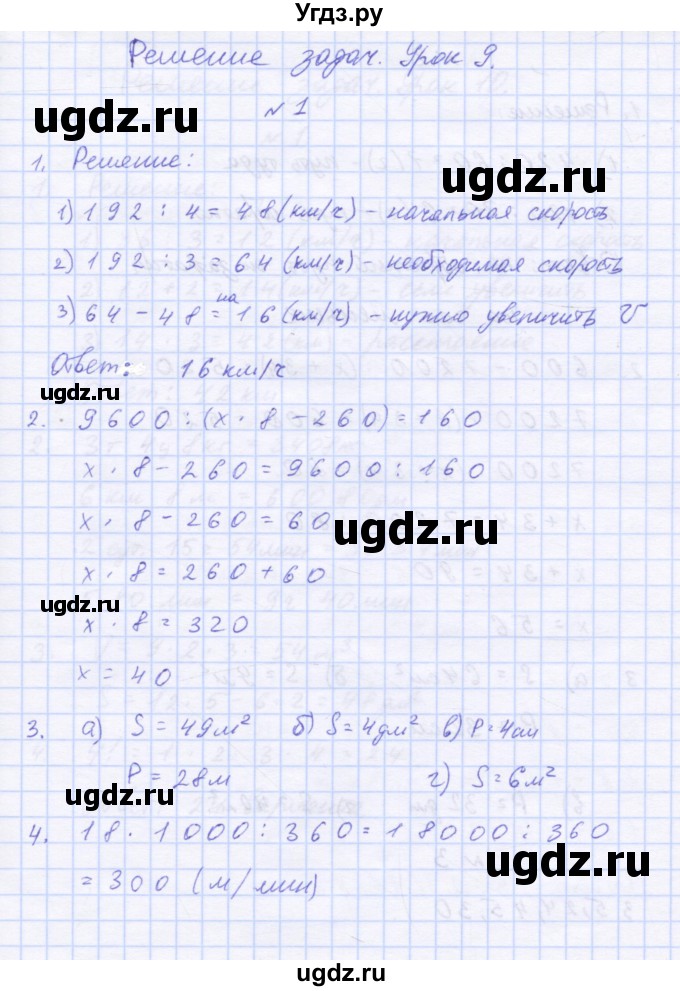 Угдз.ру
Решение задач. Урок 9.
№ 1
1. Решение:
1) 192 : 4 = 48 (км/ч) – начальная скорость
2) 192 : 3 = 64 (км/ч) – необходимая скорость
3) 64 – 48 = 16 (км/ч) – на нужно увеличить V
Ответ: 16 км/ч
2. 9600 : (х · 8 – 260) = 160
х · 8 – 260 = 9600 : 160
х · 8 – 260 = 60
х · 8 = 260 + 60
х · 8 = 320
х = 40
3. а) S = 49 м² б) S = 4 дм² в) P = 4 см
P = 28 м г) S = 6 м²
4. 18 · 1000 : 360 = 18000 : 360
= 300 (м/мин)
ugdz.ru
ugdz.ru
ugdz.ru
ugdz.ru
ugdz.ru
ugdz.ru
ugdz.ru
ugdz.ru
ugdz.ru